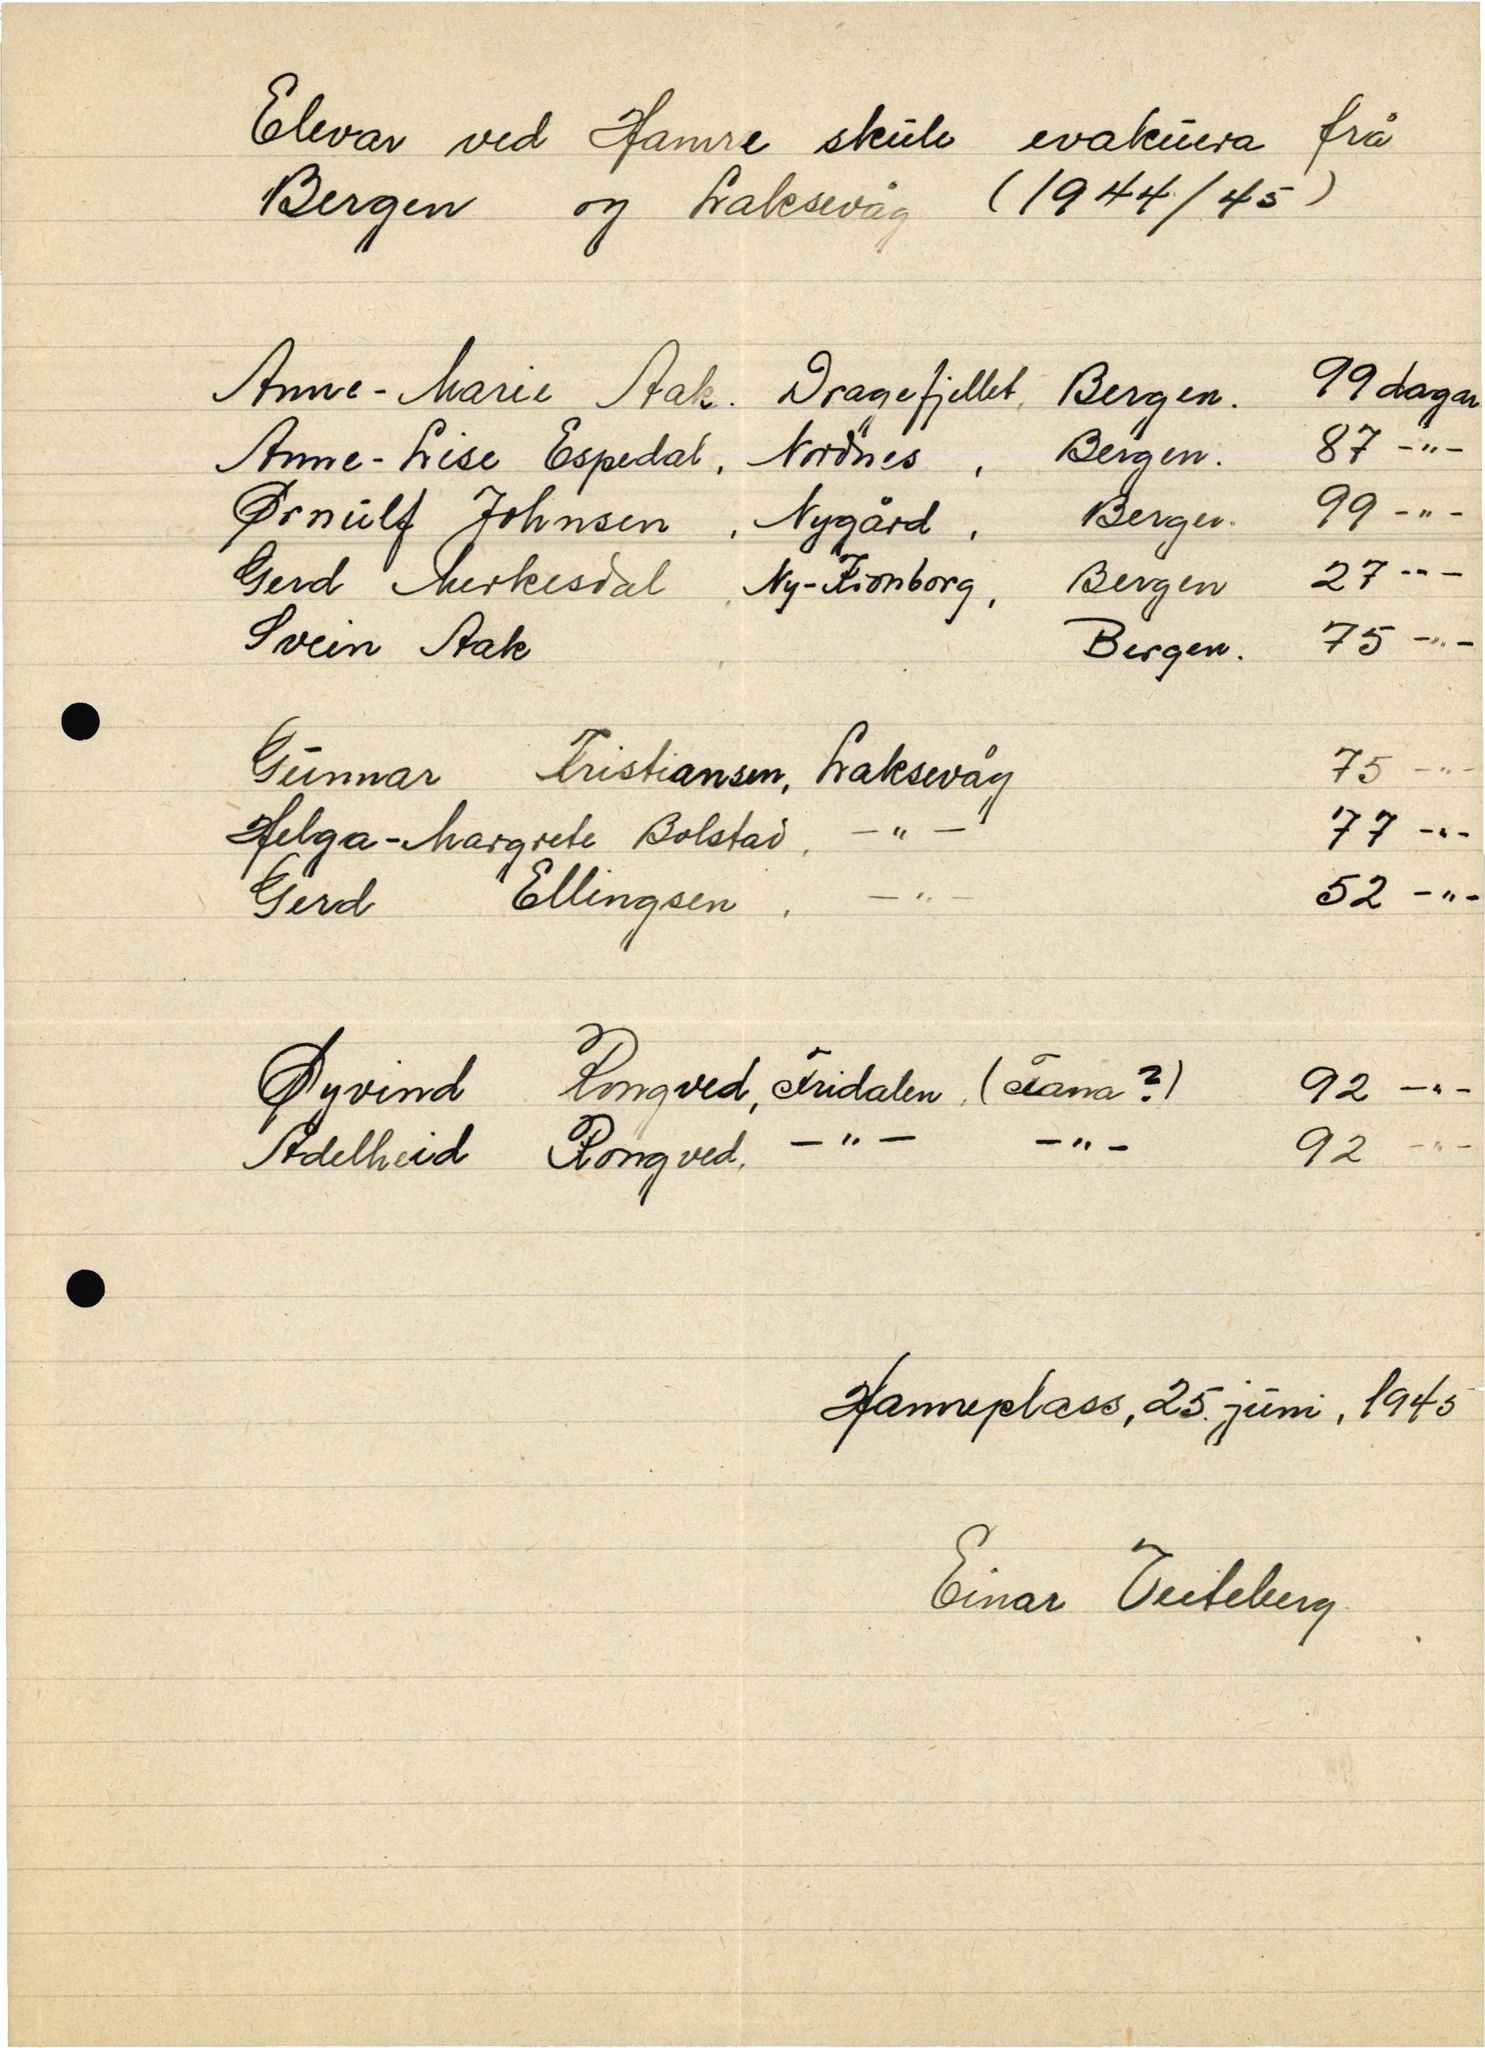 Elevar ved Hamre skule evakuera frå
Bergen og Laksevåg (1944/45)
Anne-Marie Aak. Dragefjellet, Bergen. 99 dagar
Anne-Lise Espedal, Nordnes, Bergen. 87 -"-
Ørnulf Johnsen, Nygård, Bergen. 99 -"-
Gerd Merkesdal, Ny-Kronborg, Bergen 27 -"-
Svein Aak Bergen. 75 -"-
Gunnar Kristiansen, Laksevåg 75 -"-
Helga-Margrete Bolstad, -"- 77 -"-
Gerd Ellingsen, -"- 52 -"-
Øyvind Rongved, Fridalen, (Fana?) 92 -"-
Adelheid Rongved, -"- -"- 92 -"-
Hamreplass, 25. juni, 1945
Einar Veiteberg